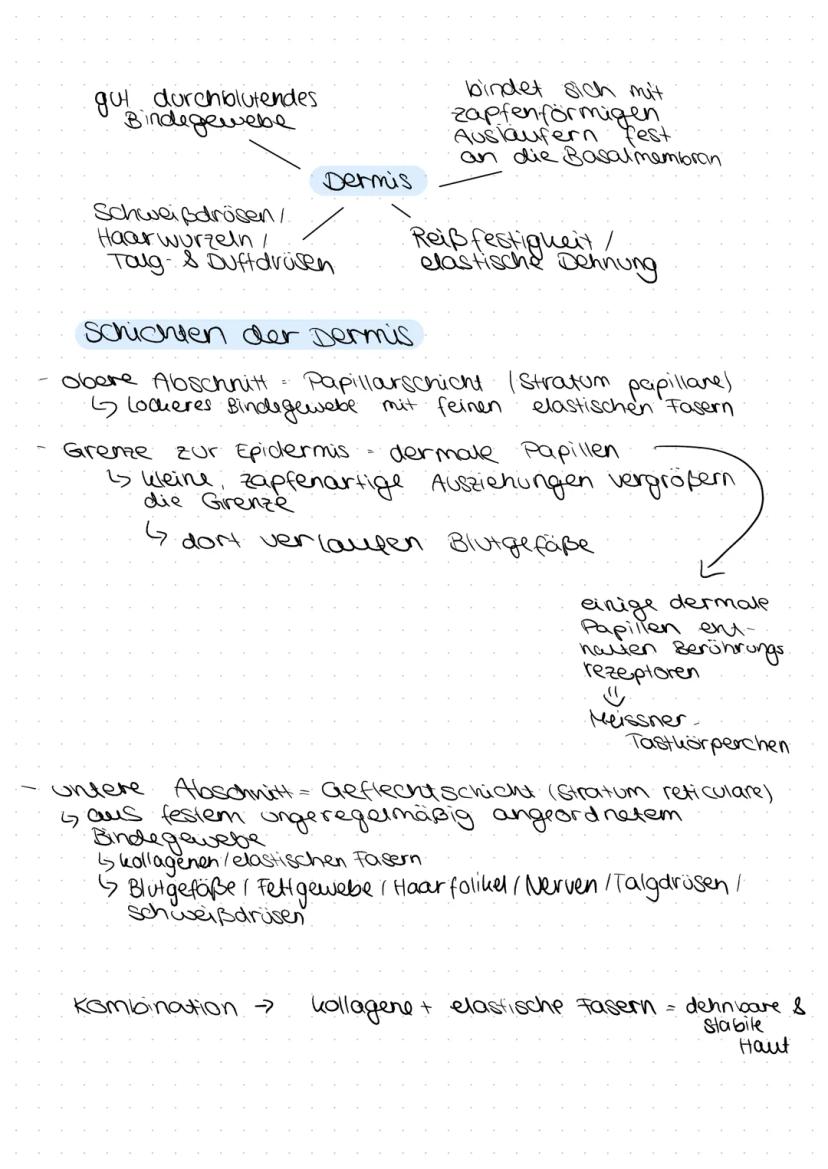 gut durchblutendes
Bindegewebe
bindet sich mit
zapfenförmigen
Ausläufern fest
an die Basalmembran
Dermis
Schweißdrüsen /
Haarwurzeln /
Talg- & Duftdrüsen
Reißfestigkeit /
elastische Dehnung
Schichten der Dermis
- obere Abschnitt = Papillarschicht (Stratum papillare)
↳ lockeres Bindegewebe mit feinen elastischen Fasern
- Grenze zur Epidermis = dermale Papillen
↳ kleine, zapfenartige Ausziehungen vergrößern
die Grenze
↳ dort verlaufen Blutgefäße
einige dermale
Papillen ent-
halten Berührungs
rezeptoren
⇓
Meissner-
Tastkörperchen
- untere Abschnitt = Geflechtschicht (Stratum reticulare)
↳ aus festem ungeregelmäßig angeordnetem
Bindegewebe
↳ kollagenen / elastischen Fasern
↳ Blutgefäße / Fettgewebe / Haarfolikel / Nerven / Talgdrüsen /
schweißdrüsen
Kombination → kollagene + elastische Fasern = dehnbare &
stabile
Haut